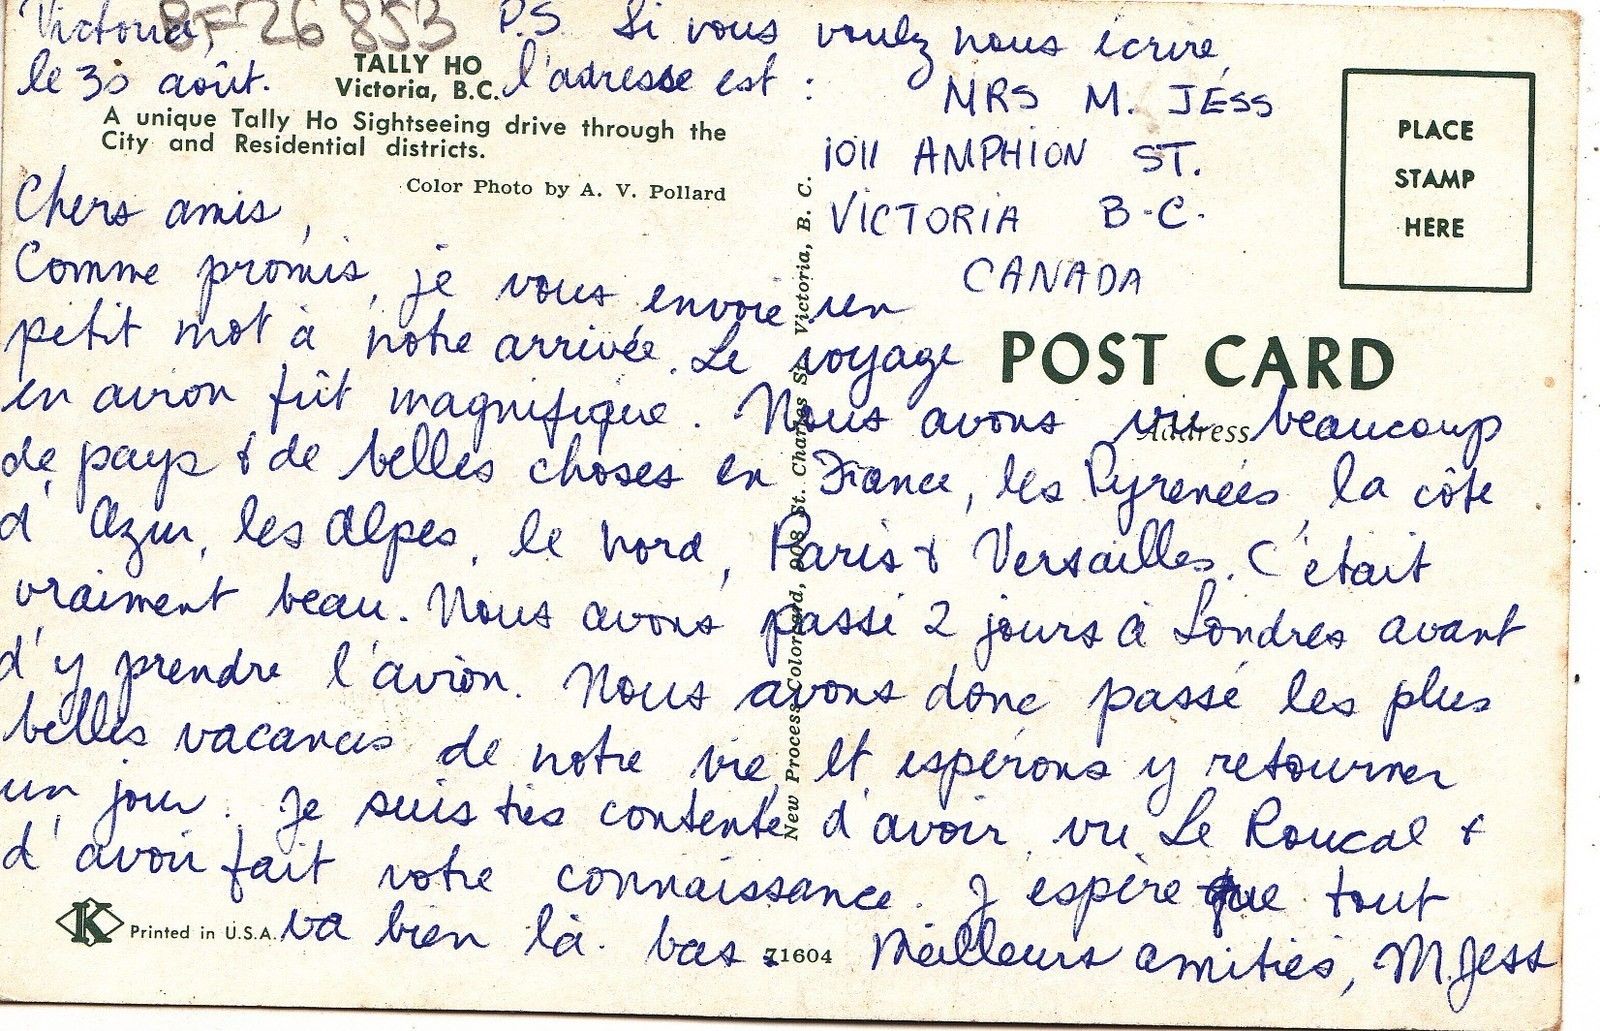 Victoria,
le 30 août.
BF26 853
P.S. Si vous voulez nous écrire,
l'adresse est :
MRS M. JESS
1011 AMPHION ST.
VICTORIA B-C.
CANADA
TALLY HO
Victoria, B.C.
A unique Tally Ho Sightseeing drive through the
City and Residential districts.
Color Photo by A. V. Pollard
PLACE
STAMP
HERE
POST CARD
Address
New Process Colorcard, 908 St. Charles St. Victoria, B. C.
Chers amis,
Comme promis, je vous envoie un
petit mot à notre arrivée. Le voyage
en avion fût magnifique. Nous avons vu beaucoup
de pays & de belles choses en France, les Pyrenées, la côte
d'Azur, les Alpes, le nord, Paris & Versailles. C'était
vraiment beau. Nous avons passé 2 jours à Londres avant
d'y prendre l'avion. Nous avons donc passé les plus
belles vacances de notre vie, et espérons y retourner
un jour. Je suis très contente d'avoir vu Le Roucal &
d'avoir fait votre connaissance. J espère que tout
va bien là. bas. Meilleurs amitiés, M. Jess
K Printed in U.S.A.
71604